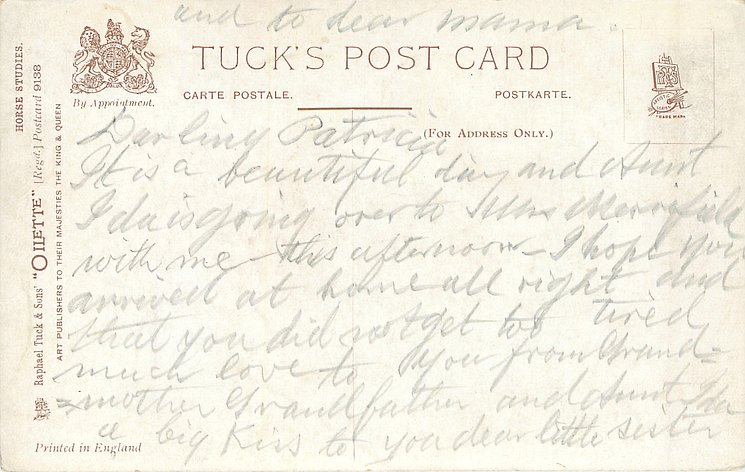 and to dear mama.
TUCK'S POST CARD
CARTE POSTALE.
POSTKARTE.
(FOR ADDRESS ONLY.)
By Appointment.
ARTISTIC SERIES
TRADE MARK
HORSE STUDIES.
Raphael Tuck & Sons' "OILETTE" [Regd.] Postcard 9138
ART PUBLISHERS TO THEIR MAJESTIES THE KING & QUEEN
Darling Patricia
It is a beautiful day and Aunt
Ida is going over to
with me this afternoon - I hope you
arrived at home all right and
that you did not get too tired
much love to you from Grand=
=mother Grandfather and Aunt Ida
a big Kiss to you dear little sister
Printed in England